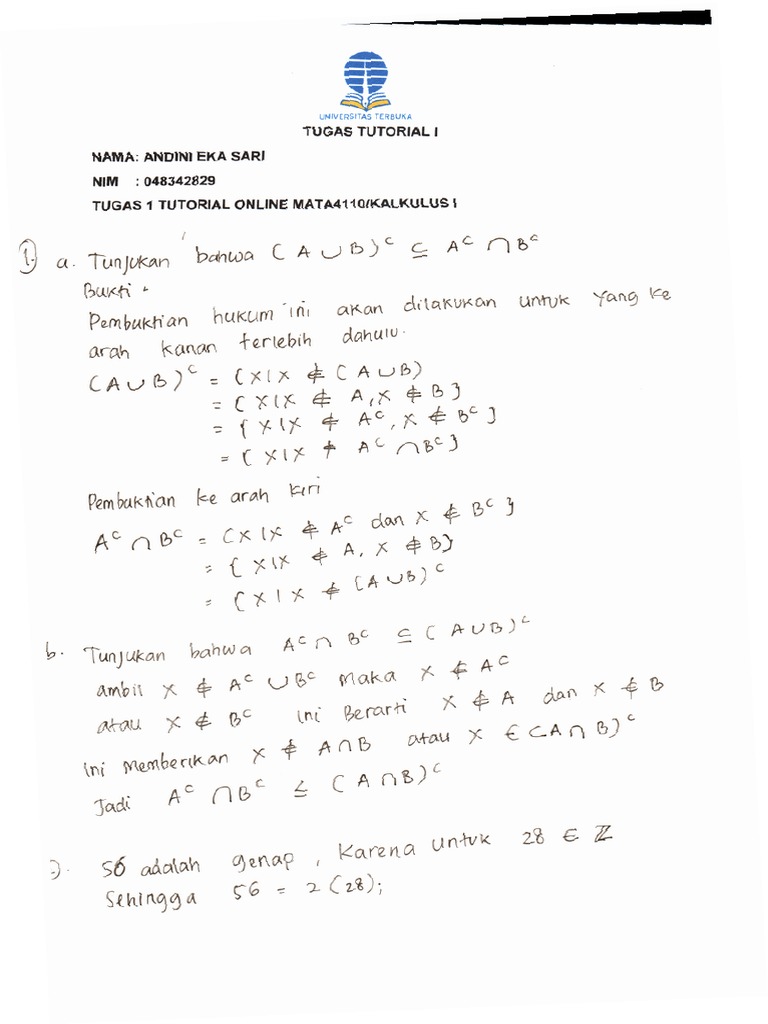 UNIVERSITAS TERBUKA
TUGAS TUTORIAL I
NAMA: ANDINI EKA SARI
NIM : 048342829
TUGAS 1 TUTORIAL ONLINE MATA4110/KALKULUS I
1. a. Tunjukan bahwa (A ∪ B)ᶜ ⊆ Aᶜ ∩ Bᶜ
Bukti -
Pembuktian hukum ini akan dilakukan untuk yang ke
arah kanan terlebih dahulu.
(A ∪ B)ᶜ = {X|X ∉ (A ∪ B)
= {X|X ∉ A, X ∉ B}
= {X|X ∉ Aᶜ, X ∉ Bᶜ}
= {X|X ∉ Aᶜ ∩ Bᶜ}
Pembuktian ke arah kiri
Aᶜ ∩ Bᶜ = {X|X ∉ Aᶜ dan X ∉ Bᶜ}
= {X|X ∉ A, X ∉ B}
= {X|X ∉ (A ∪ B)ᶜ
b. Tunjukan bahwa Aᶜ ∩ Bᶜ ⊆ (A ∪ B)ᶜ
ambil X ∉ Aᶜ ∪ Bᶜ maka X ∉ Aᶜ
atau X ∉ Bᶜ ini Berarti X ∉ A dan X ∉ B
ini memberikan X ∉ A ∩ B atau X ∈ (A ∩ B)ᶜ
Jadi Aᶜ ∩ Bᶜ ≤ (A ∩ B)ᶜ
56 adalah genap, karena untuk 28 ∈ ℤ
Sehingga 56 = 2(28);